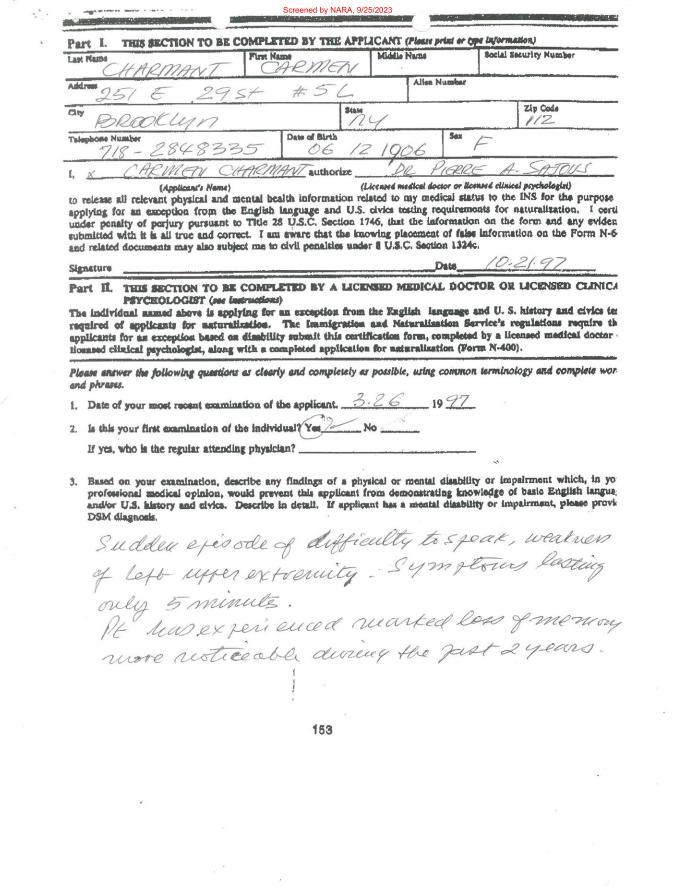 Screened by NARA, 9/25/2023
Part I. THIS SECTION TO BE COMPLETED BY THE APPLICANT (Please print or type information)
Last Name First Name Middle Name Social Security Number
CHARMANT CARMEN
Address Alien Number
251 E 29 St #5L
City State Zip Code
BROOKLYN NY 112
Telephone Number Date of Birth Sex
718-2848335 06 12 1906 F
I, x CARMEN CHARMANT authorize DR PIERRE A. SAJOUS
(Applicant's Name) (Licensed medical doctor or licensed clinical psychologist)
to release all relevant physical and mental health information related to my medical status to the INS for the purpose
applying for an exception from the English language and U.S. civics testing requirements for naturalization. I certi
under penalty of perjury pursuant to Title 28 U.S.C. Section 1746, that the information on the form and any eviden
submitted with it is all true and correct. I am aware that the knowing placement of false information on the Form N-6
and related documents may also subject me to civil penalties under 8 U.S.C. Section 1324c.
Signature Date 10-21-97
Part II. THIS SECTION TO BE COMPLETED BY A LICENSED MEDICAL DOCTOR OR LICENSED CLINICA
PSYCHOLOGIST (see instructions)
The individual named above is applying for an exception from the English language and U. S. history and civics tes
required of applicants for naturalization. The Immigration and Naturalization Service's regulations require th
applicants for an exception based on disability submit this certification form, completed by a licensed medical doctor
licensed clinical psychologist, along with a completed application for naturalization (Form N-400).
Please answer the following questions as clearly and completely as possible, using common terminology and complete wor
and phrases.
1. Date of your most recent examination of the applicant. 3.26 19 97
2. Is this your first examination of the individual? Yes No
If yes, who is the regular attending physician?
3. Based on your examination, describe any findings of a physical or mental disability or impairment which, in yo
professional medical opinion, would prevent this applicant from demonstrating knowledge of basic English langua
and/or U.S. history and civics. Describe in detail. If applicant has a mental disability or impairment, please provi
DSM diagnosis.
Sudden episode of difficulty to speak, weakness
of left upper extremity - Symptoms lasting
only 5 minutes.
Pt has experienced marked loss of memory
more noticeable during the past 2 years.
153